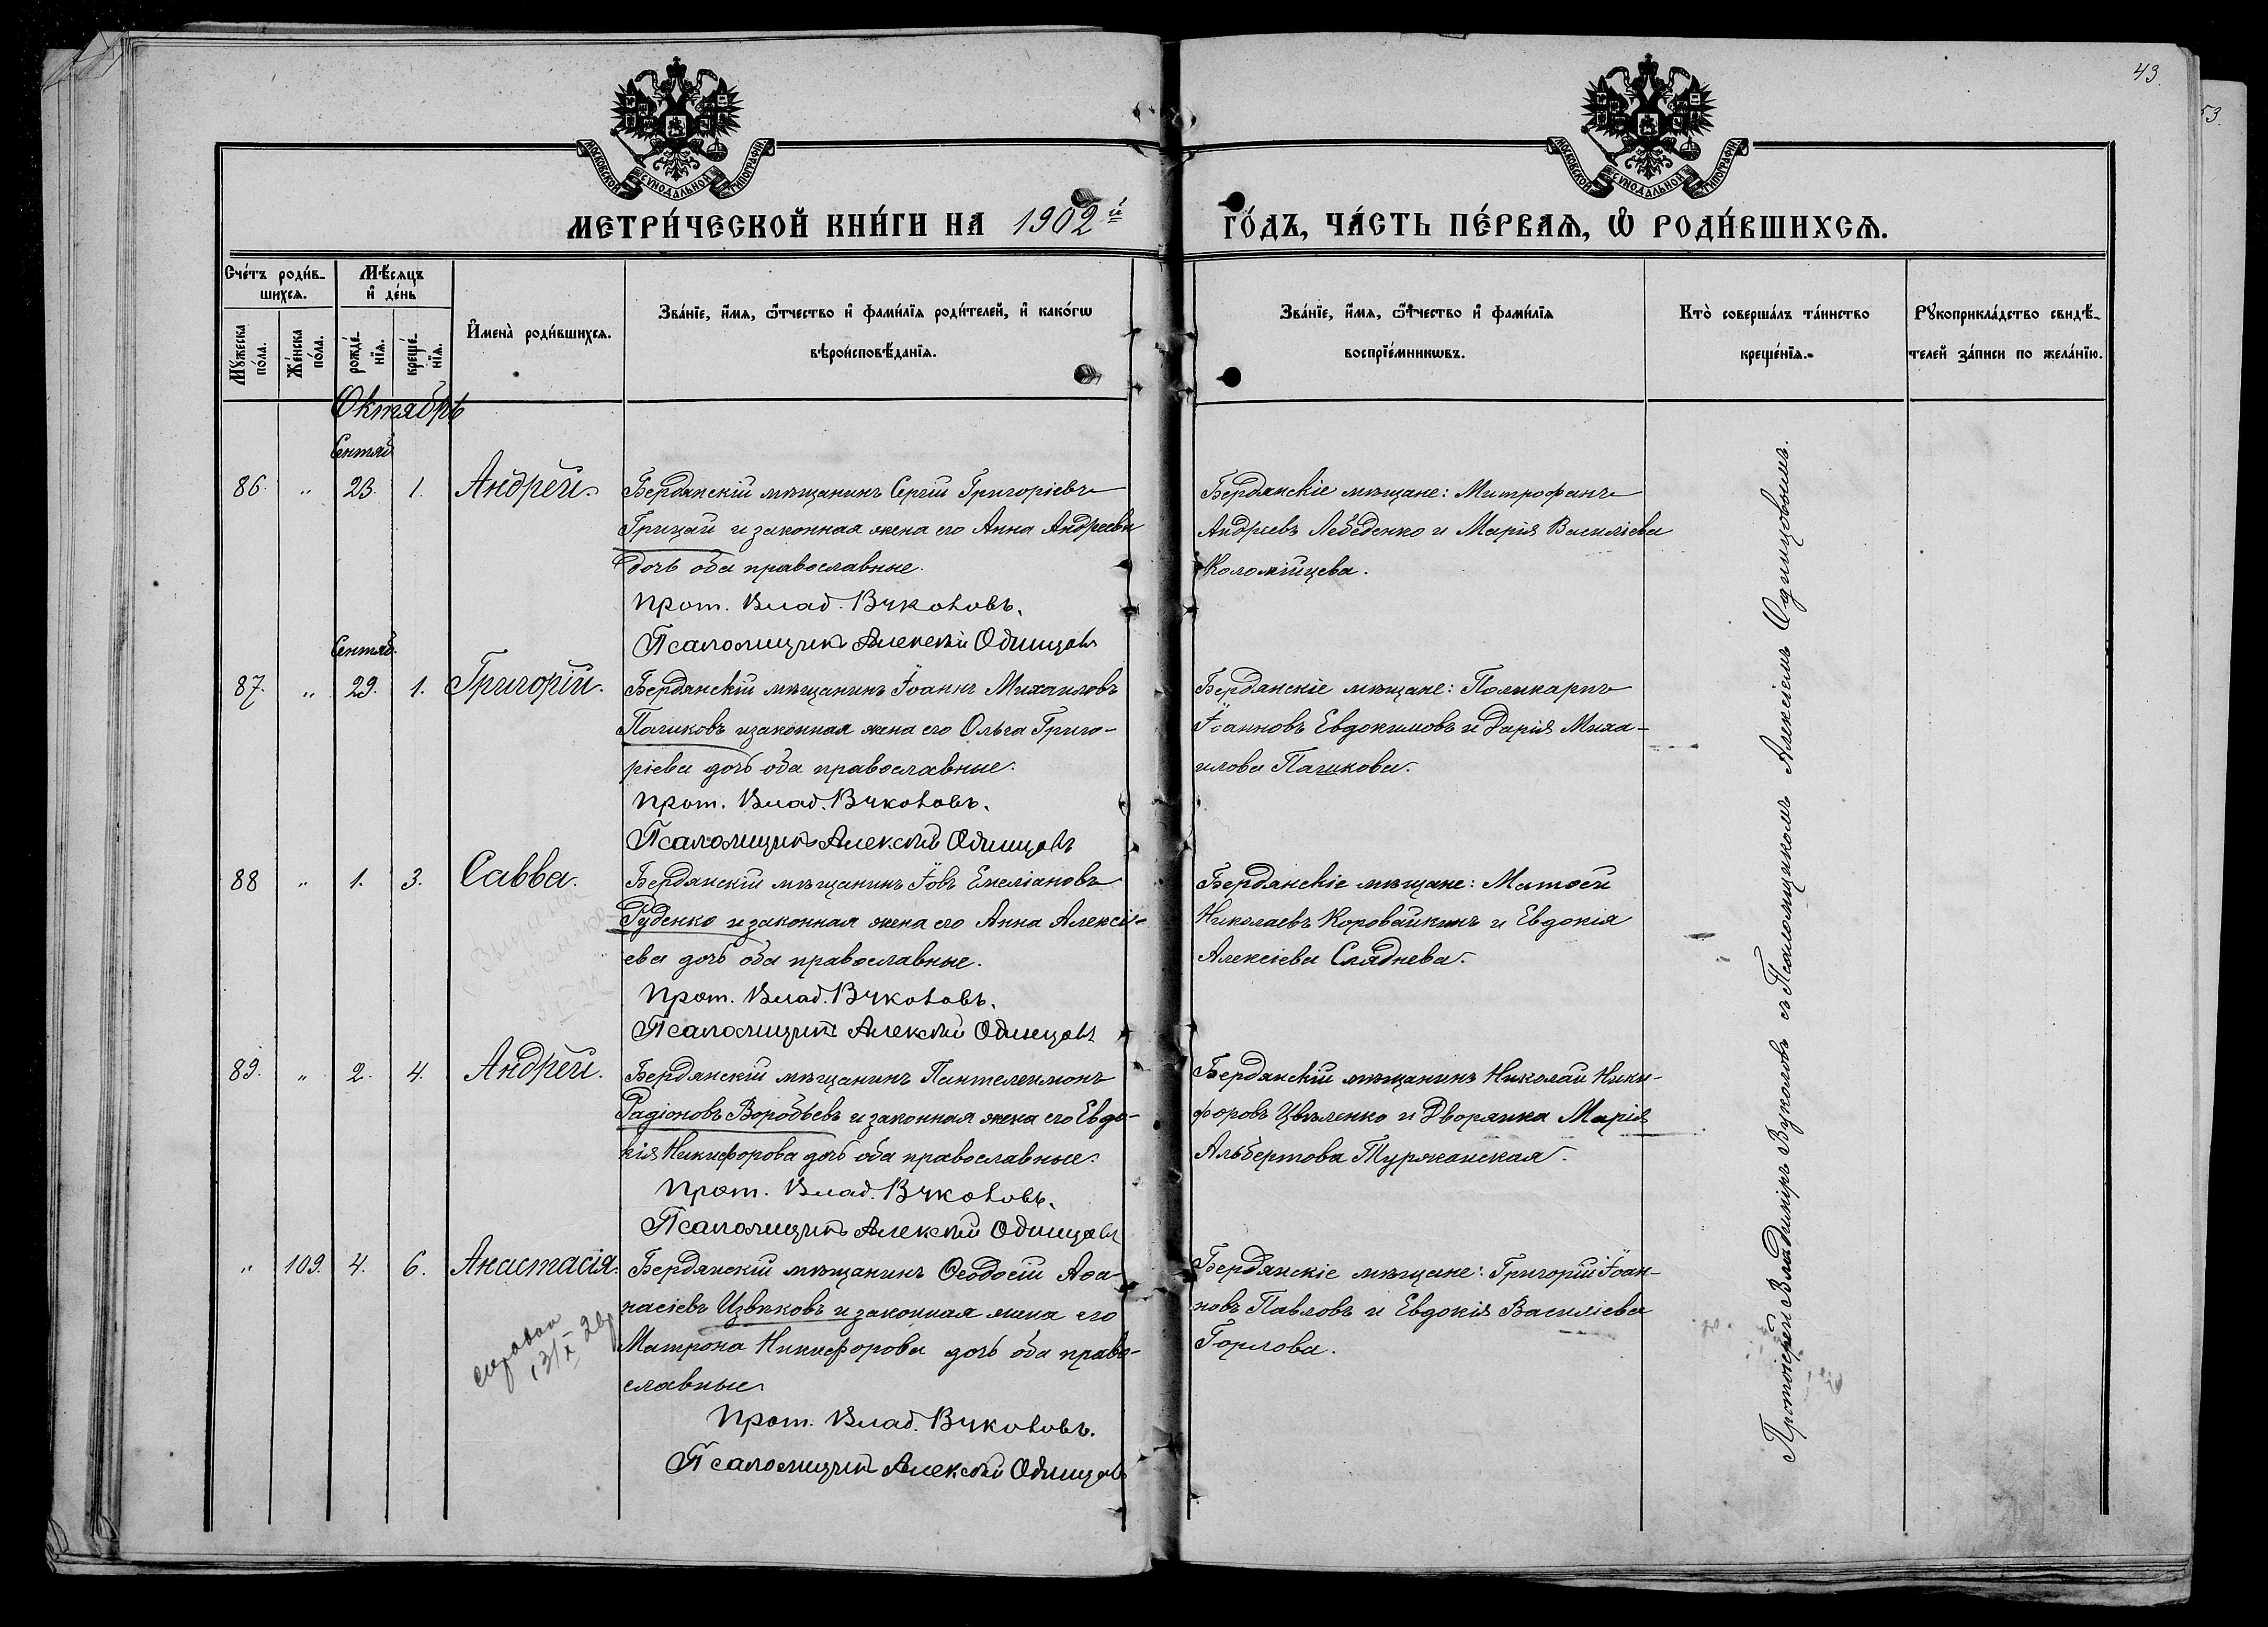 43.
53.
МОСКОВСКОЙ СѴНОДАЛЬНОЙ ТИПОГРАФІИ
МОСКОВСКОЙ СѴНОДАЛЬНОЙ ТИПОГРАФІИ
МЕТРИ́ЧЕСКОЙ КНИ́ГИ НА 1902й ГО́ДЪ, ЧА́СТЬ ПЕ́РВАѦ, Ѡ РОДИ́ВШИХСѦ.
Сче́тъ роди́в-
шихсѧ.
Мꙋжеска
по́ла.
Же́нска
по́ла.
Мѣ́сѧцъ
и҆ де́нь
рожде́-
нїѧ.
креще́-
нїѧ.
И҆мена̀ роди́вшихсѧ.
Зва́нїе, и҆́мѧ, ѻ҆́тчество и҆ фами́лїѧ роди́телей, и҆ како́гѡ
вѣроисповѣ́данїѧ.
Зва́нїе, и҆́мѧ, ѻ҆́тчество и҆ фами́лїѧ
воспрїе́мникѡвъ.
Кто̀ соверша́лъ та́инство
креще́нїѧ.
Рꙋкоприкла́дство свидѣ́-
телей за́писи по жела́нїю.
Октябрь
Сентяб
86. " 23. 1. Андрей. Бердянскій мѣщанинъ Сергій Григоріевъ
Грицай и законная жена его Анна Андреева
дочь оба православные.
Прот. Влад. Вуколовъ.
Псаломщикъ Алексѣй Одинцовъ
Бердянскіе мѣщане: Митрофанъ
Андреевъ Лебеденко и Марія Василіева
Коломійцева.
Сентяб.
87. " 29. 1. Григорій. Бердянскій мѣщанинъ Іоаннъ Михаиловъ
Пашковъ и законная жена его Ольга Григо-
ріева дочь оба православные.
Прот. Влад. Вуколовъ.
Псаломщикъ Алексѣй Одинцовъ
Бердянскіе мѣщане: Поликарпъ
Іоанновъ Евдокимовъ и Дарія Миха-
илова Пашкова.
88 " 1. 3. Савва. Бердянскій мѣщанинъ Іовъ Емеліановъ
Руденко и законная жена его Анна Алексі-
ева дочь оба православные.
Прот. Влад. Вуколовъ.
Псаломщикъ Алексѣй Одинцовъ
Бердянскіе мѣщане: Матѳей
Николаевъ Коровайкинъ и Евдокія
Алексіева Сляднева.
89. " 2. 4. Андрей. Бердянскій мѣщанинъ Пантелеимонъ
Радіоновъ Воробьевъ и законная жена его Евдо-
кія Никифорова дочь оба православные.
Прот. Влад. Вуколовъ.
Псаломщикъ Алексѣй Одинцовъ
Бердянскій мѣщанинъ Николай Ники-
форовъ Цвѣленко и Дворянка Марія
Альбертова Туржанская.
" 109. 4. 6. Анастасія. Бердянскій мѣщанинъ Ѳеодосій Аѳа-
насіевъ Извѣковъ и законная жена его
Матрона Никифорова дочь оба право-
славные.
Прот. Влад. Вуколовъ.
Псаломщикъ Алексѣй Одинцовъ
Бердянскіе мѣщане: Григорій Іоан-
новъ Павловъ и Евдокія Василіева
Горлова.
Протоіерей Владиміръ Вуколовъ съ Псаломщикомъ Алексіемъ Одинцовымъ.